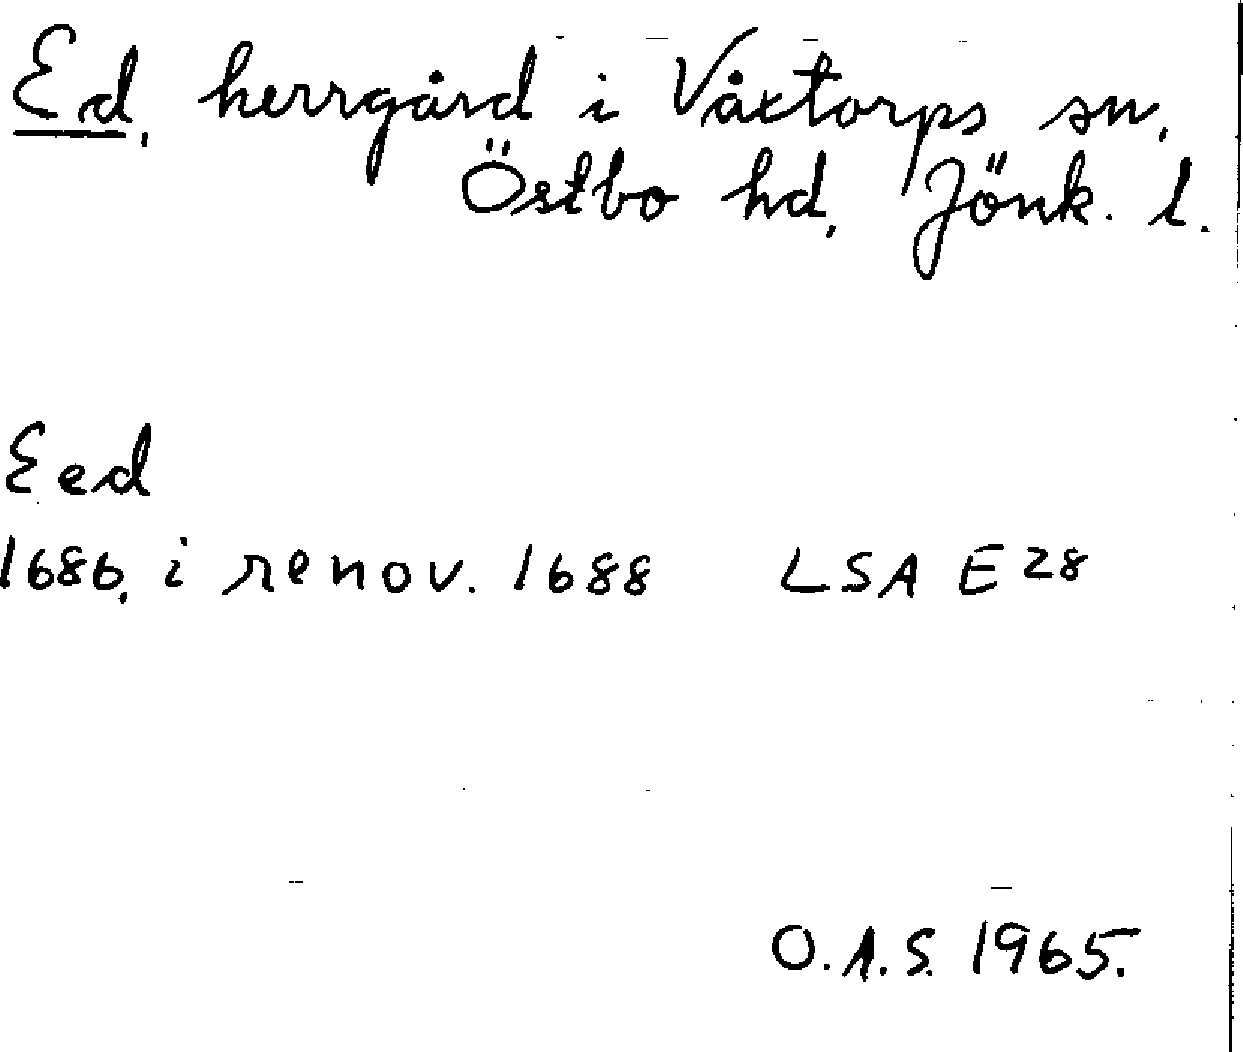 Ed, herrgård i Våxtorps sn,
Östbo hd, Jönk. l.
Eed
1686, i renov. 1688 LSA E 28
O.A.S. 1965.